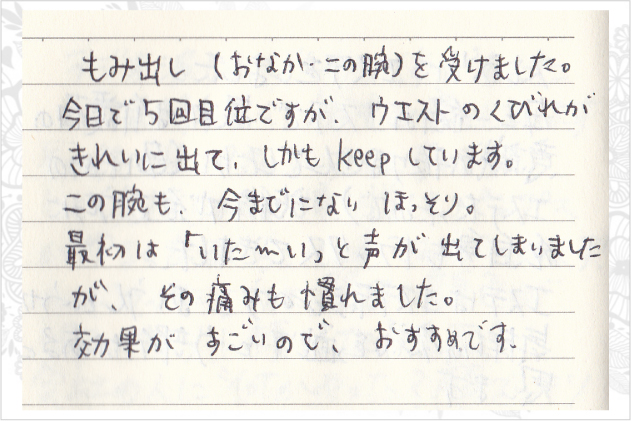 もみ出し（おなか・二の腕）を受けました。
今日で5回目位ですが、ウエストのくびれが
きれいに出て、しかもkeepしています。
二の腕も、今までにない ほっそり。
最初は「いた〜い」と声が出てしまいました
が、その痛みも慣れました。
効果がすごいので、おすすめです。